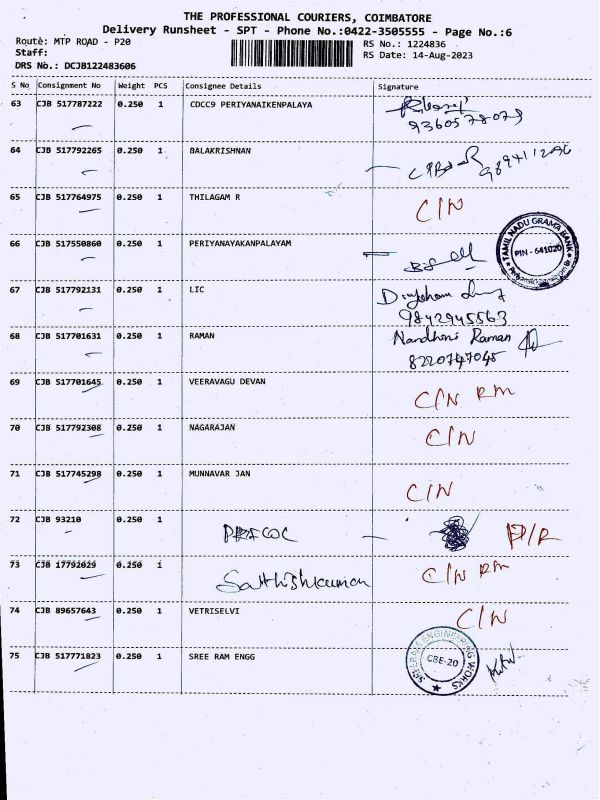 THE PROFESSIONAL COURIERS, COIMBATORE
Delivery Runsheet - SPT - Phone No.:0422-3505555 - Page No.:6
Route: MTP ROAD - P20
RS No.: 1224836
Staff:
RS Date: 14-Aug-2023
DRS No.: DCJB122483606
S No Consignment No Weight PCS Consignee Details Signature
63 CJB 517787222 0.250 1 CDCC9 PERIYANAIKENPALAYA
9360578079
64 CJB 517792265 0.250 1 BALAKRISHNAN
65 CJB 517764975 0.250 1 THILAGAM R C/N
66 CJB 517550860 0.250 1 PERIYANAYAKANPALAYAM
TAMIL NADU GRAMA BANK
PIN - 641020
67 CJB 517792131 0.250 1 LIC
9842945563
68 CJB 517701631 0.250 1 RAMAN Nandhini Raman
8220747045
69 CJB 517701645 0.250 1 VEERAVAGU DEVAN C/N RM
70 CJB 517792308 0.250 1 NAGARAJAN C/N
71 CJB 517745298 0.250 1 MUNNAVAR JAN C/N
72 CJB 93210 0.250 1 D/R
73 CJB 17792029 0.250 1 Sathishkumar C/N RM
74 CJB 89657643 0.250 1 VETRISELVI C/N
75 CJB 517771823 0.250 1 SREE RAM ENGG
SREERAM ENGINEERING WORKS
CBE-20